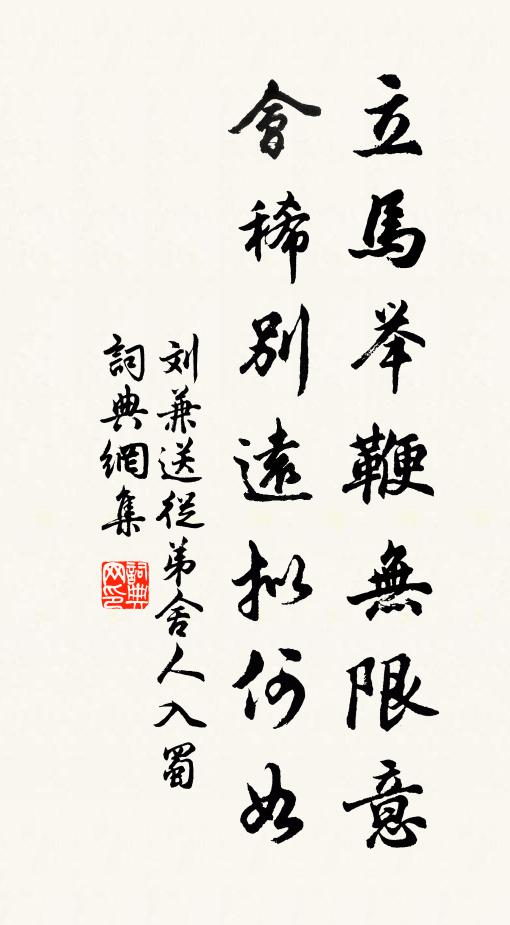 立馬举鞭無限意
會稀別遠拟何如
刘兼送従弟舍人入蜀
詞典網集
詞典网印